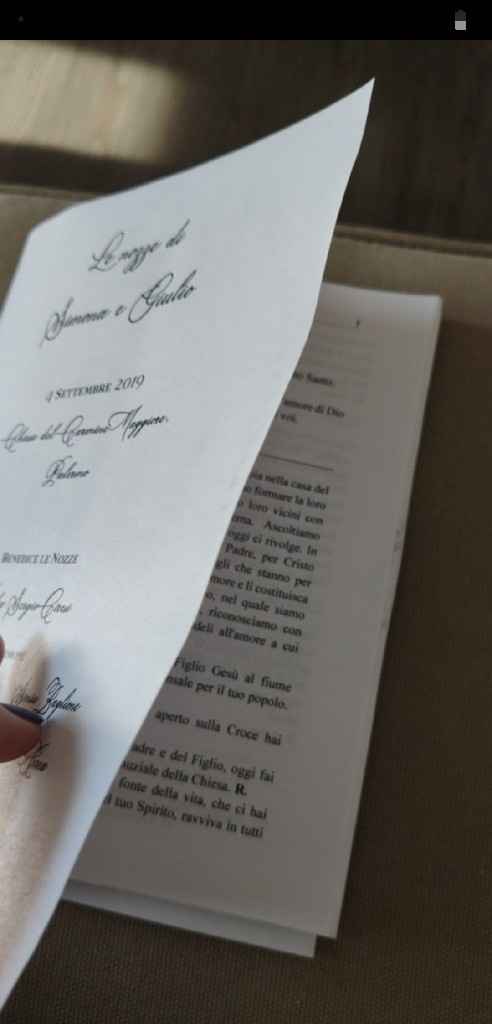 Le nozze di
Simona e Giulio
4 SETTEMBRE 2019
Chiesa del Carmine Maggiore,
Palermo
BENEDICE LE NOZZE
Sergio
Santo.
amore di Dio
voi.
nella casa del
formare la loro
loro vicini con
Ascoltiamo
oggi ci rivolge. In
Padre, per Cristo
gli che stanno per
more e li costituisca
nel quale siamo
riconosciamo con
deli all'amore a cui
Figlio Gesù al fiume
nsale per il tuo popolo.
aperto sulla Croce hai
adre e del Figlio, oggi fai
uziale della Chiesa. R.
fonte della vita, che ci hai
tuo Spirito, ravviva in tutti